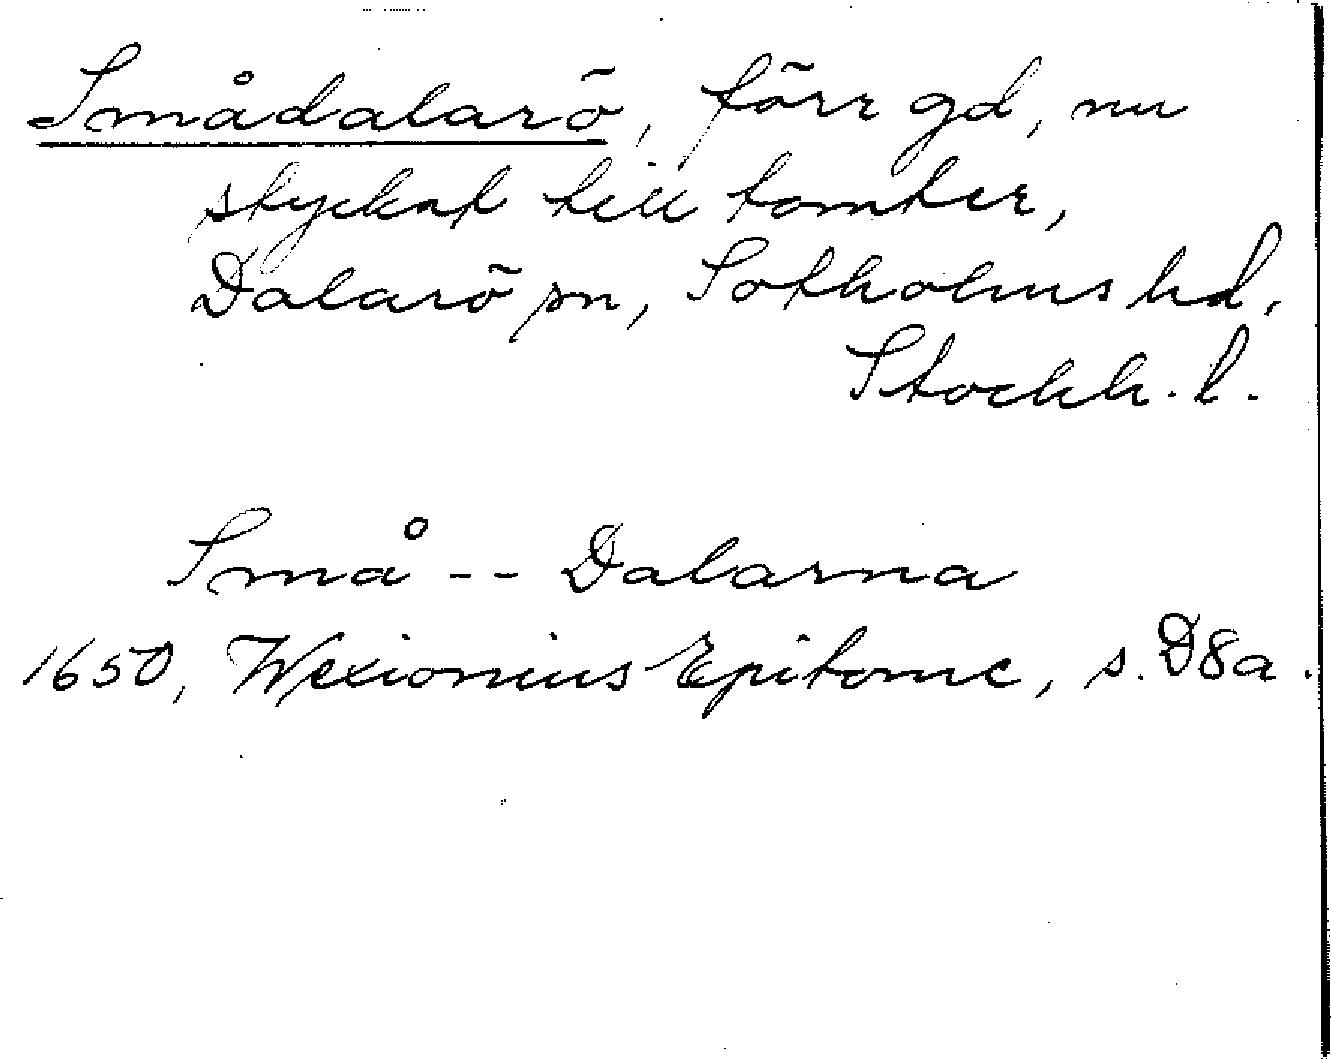 Smådalarö, förr gd, nu
styckat till tomter,
Dalarö sn, Sotholms hd,
Stockh. l.
Små -- Dalarna
1650, Wexionius Epitome, s. D8a.